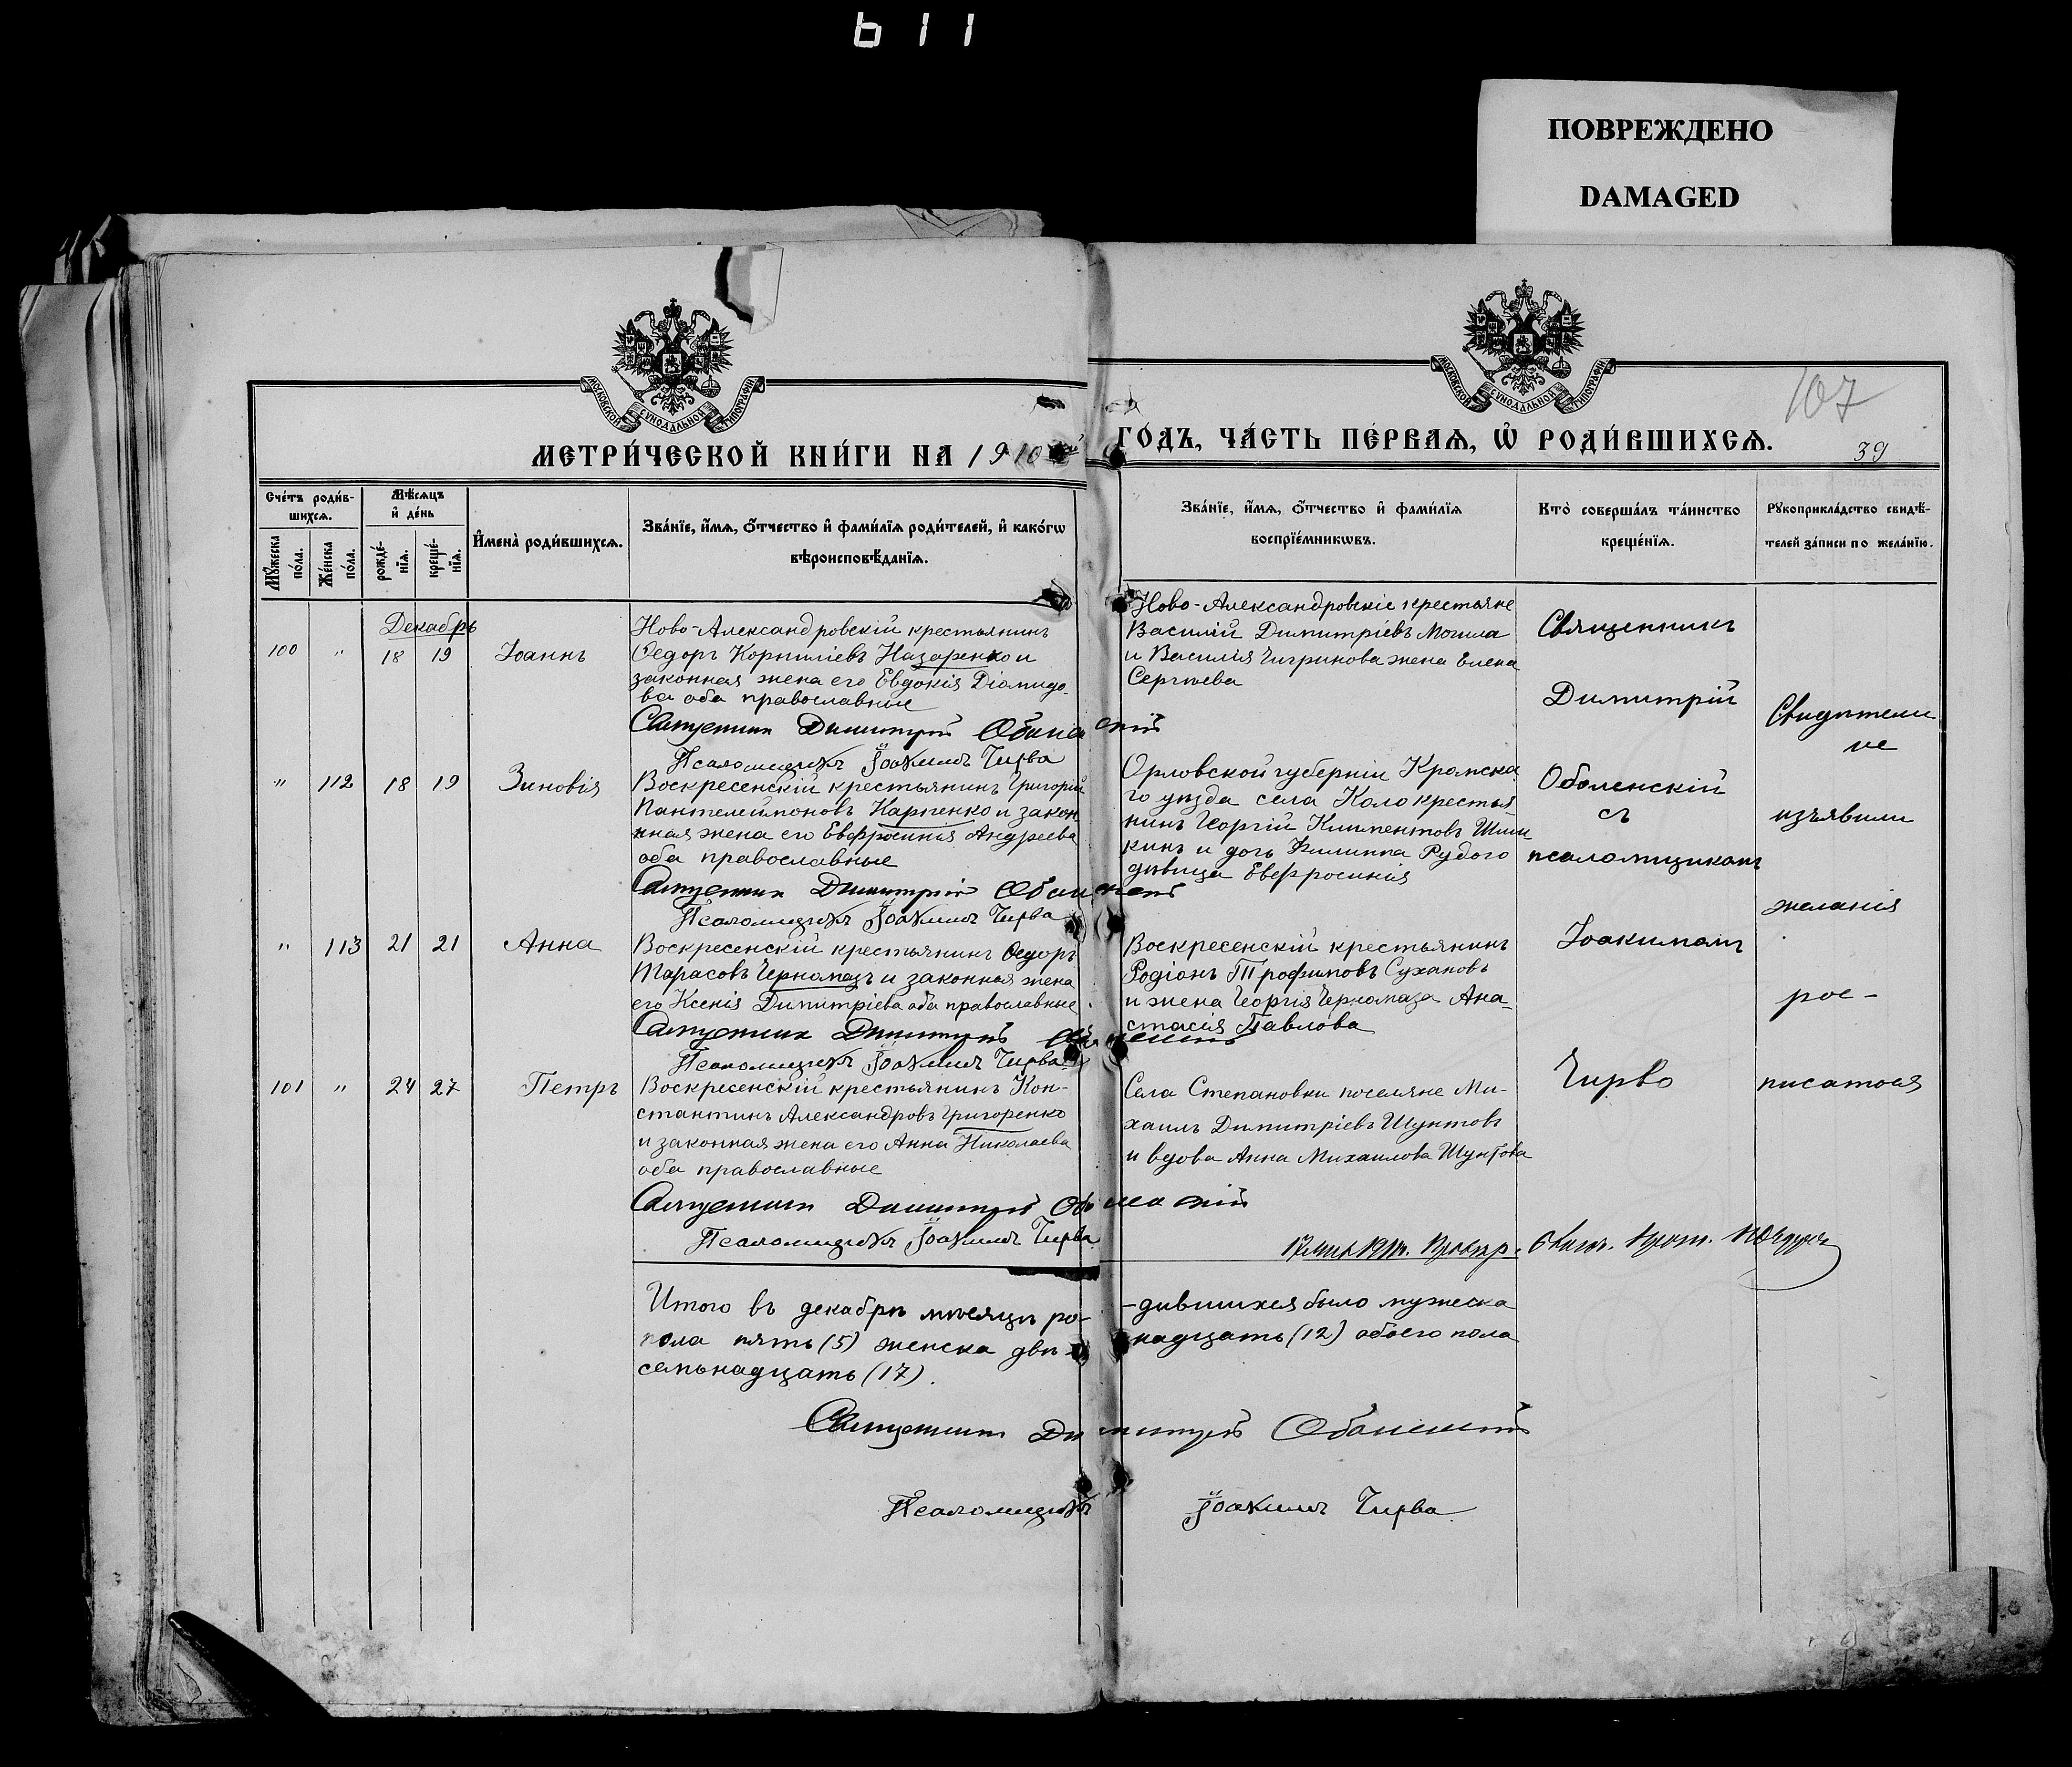 611
ПОВРЕЖДЕНО
DAMAGED
МОСКОВСКОЙ СУНОДАЛЬНОЙ ТИПОГРАФІИ
МОСКОВСКОЙ СУНОДАЛЬНОЙ ТИПОГРАФІИ
107
МЕТРИ́ЧЕСКОЙ КНИ́ГИ НА 1910
ГО́ДЪ, ЧА́СТЬ ПЕ́РВАѦ, Ѡ҆ РОДИ́ВШИХСѦ.
39
Сче́тъ роди́в-
шихсѧ.
Мꙋ́жеска по́ла.
Же́нска по́ла.
Мѣ́сѧцъ
и҆ де́нь
рожде́-нїѧ.
креще́-нїѧ.
И҆мена̀ роди́вшихсѧ.
Зва́нїе, и҆́мѧ, ѻ҆́тчество и҆ фами́лїѧ роди́телей, и҆ како́гѡ
вѣроисповѣ́данїѧ.
Зва́нїе, и҆́мѧ, ѻ҆́тчество и҆ фами́лїѧ
воспрїе́мникѡвъ.
Кто̀ соверша́лъ та́инство
креще́нїѧ.
Рꙋкоприкла́дство свидѣ́-
телей за́писи по жела́нїю.
Декабрь
100 " 18 19 Іоаннъ
Ново-Александровскій крестьянинъ
Ѳедоръ Корниліевъ Назаренко и
законная жена его Евдокія Діомидо-
ва оба православные
Священник Димитрій Оболенскій
Псаломщикъ Іоакимъ Чирва
Ново-Александровскіе крестьяне
Василій Димитріевъ Могила
и Василія Чигринова жена Елена
Сергѣева
" 112 18 19 Зиновія
Воскресенскій крестьянинъ Григорій
Пантелеимоновъ Карпенко и закон
ная жена его Евфросинія Андреева
оба православные
Священник Димитрій Оболенскій
Псаломщикъ Іоакимъ Чирва
Орловской губерніи Кромска
го уѣзда села Коло крестья
нинъ Георгій Климентовъ
кинъ и дочь Филиппа Рудого
дѣвица Евфросинія
" 113 21 21 Анна
Воскресенскій крестьянинъ Ѳедоръ
Тарасовъ Черномазъ и законная жена
его Ксенія Димитріева оба православные
Священник Димитрій Оболенскій
Псаломщикъ Іоакимъ Чирва
Воскресенскій крестьянинъ
Родіонъ Трофимовъ Сухановъ
и жена Георгія Черномаза Ана-
стасія Павлова
101 " 24 27 Петръ
Воскресенскій крестьянинъ Кон-
стантинъ Александровъ Григоренко
и законная жена его Анна Николаева
оба православные
Священник Димитрій Оболенскій
Псаломщикъ Іоакимъ Чирва
Села Степановки поселяне Ми-
хаилъ Димитріевъ Шунтовъ
и вдова Анна Михаилова Шунтова
Священникъ
Димитрій
Оболенскій
съ
псаломщикомъ
Іоакимомъ
Чирво
Свидѣтели
не
изъявили
желанія
рос-
писаться
Итого въ декабрѣ мѣсяцѣ ро-
-дившихся было мужеска
пола пять (5) женска двѣ-
надцать (12) обоего пола
семьнадцать (17).
Священник Димитрій Оболенскій
Псаломщикъ Іоакимъ Чирва